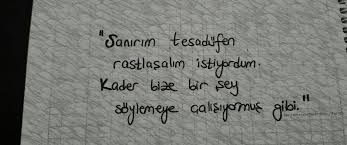 "Sanırım tesadüfen
rastlaşalım istiyordum.
Kader bize bir şey
söylemeye çalışıyormuş gibi."